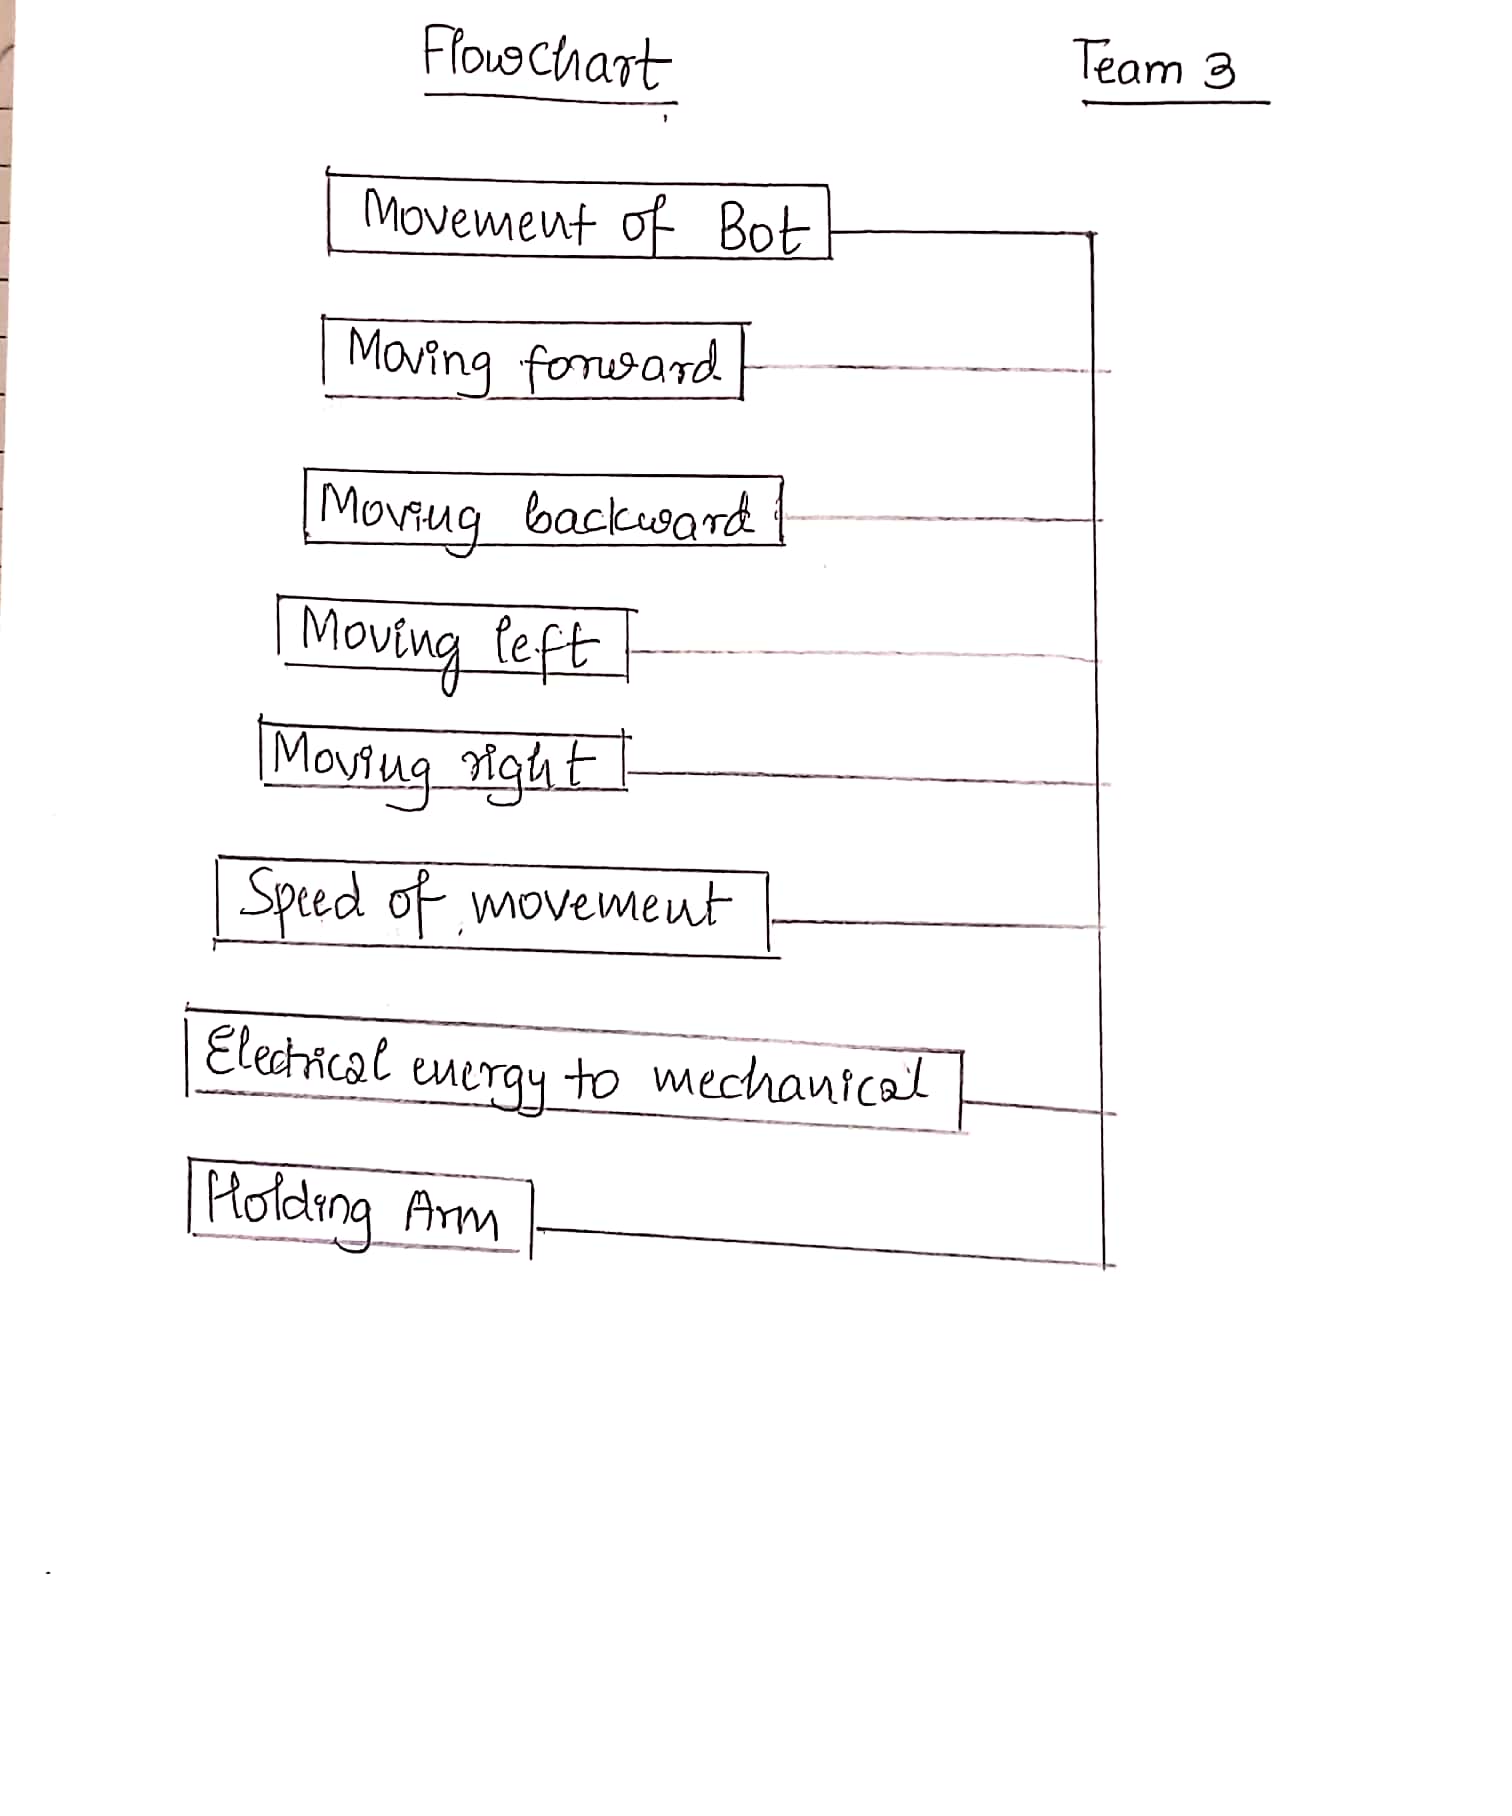 Flowchart
Team 3
Movement of Bot
Moving forward
Moving backward
Moving left
Moving right
Speed of movement
Electrical energy to mechanical
Holding Arm